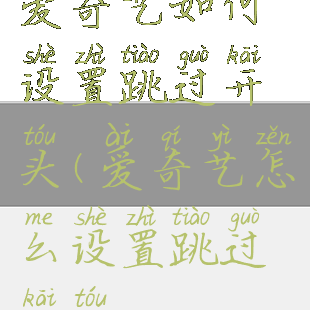 爱奇艺如何
shè zhì tiào guò kāi
设置跳过开
tóu ài qí yì zěn
头(爱奇艺怎
me shè zhì tiào guò
么设置跳过
kāi tóu